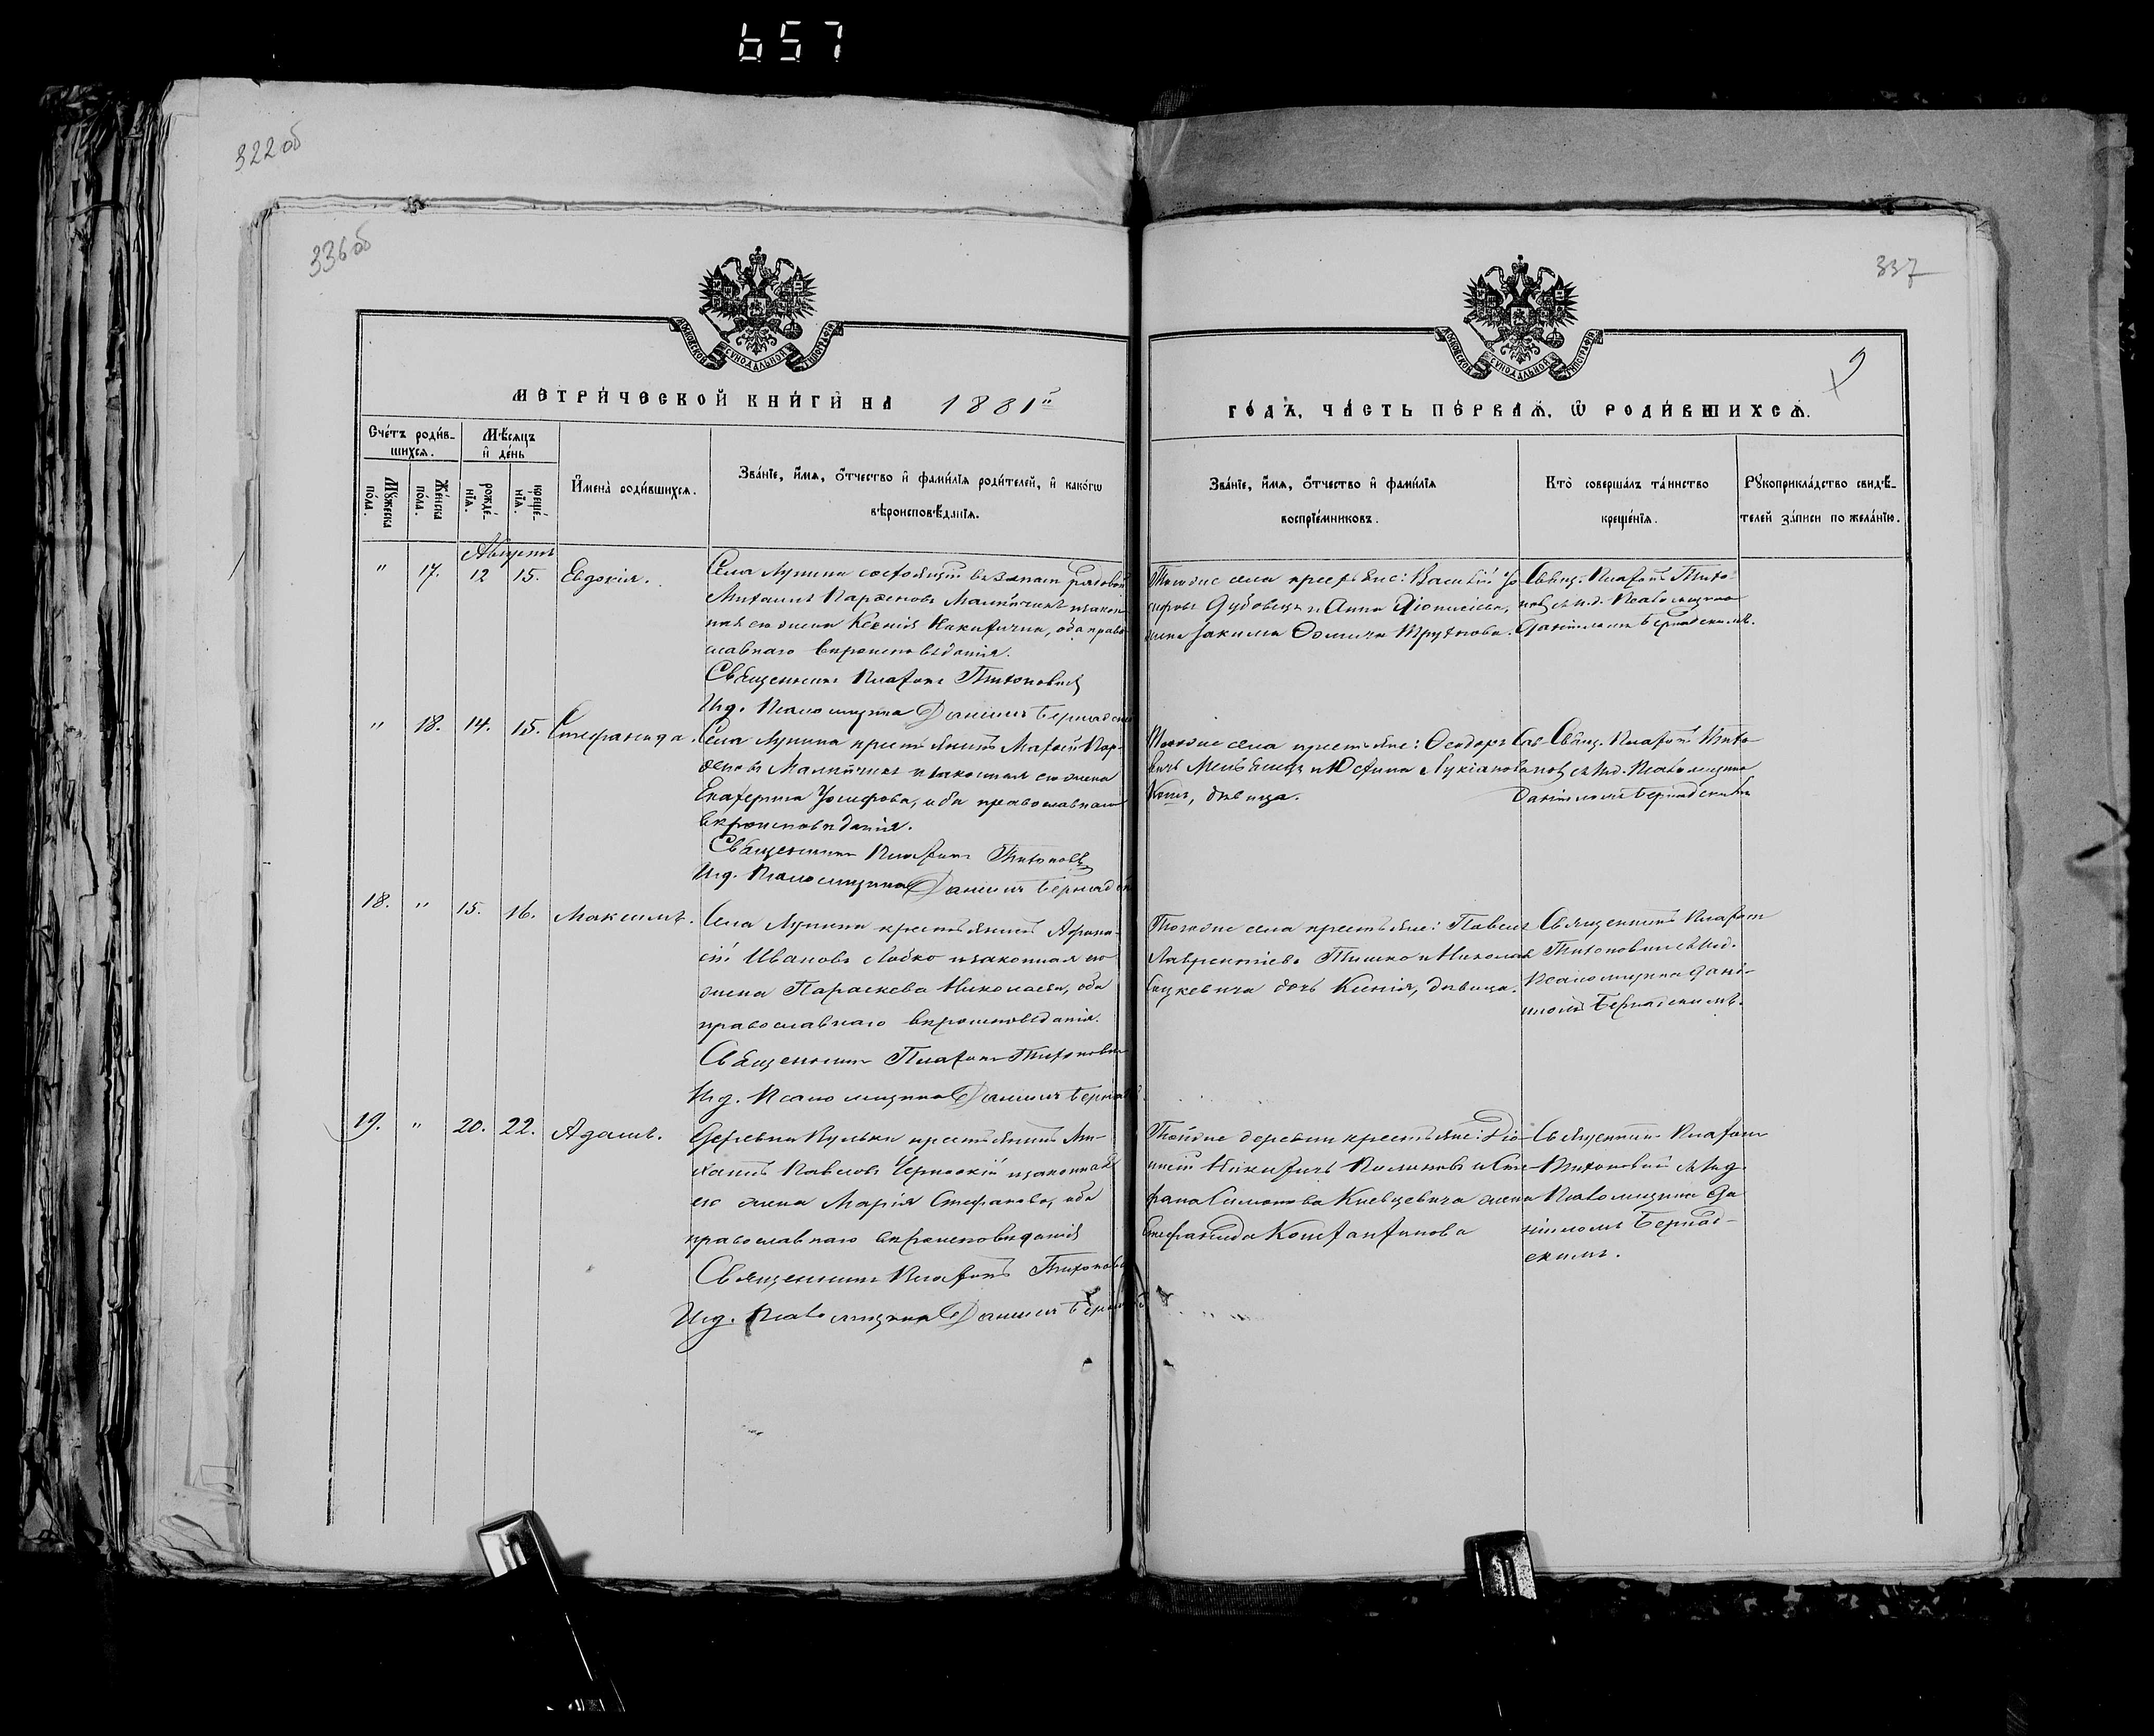 657
322 об
336 об
337
9
МОСКОВСКОЙ СѴНОДАЛЬНОЙ ТИПОГРАФІИ
МОСКОВСКОЙ СѴНОДАЛЬНОЙ ТИПОГРАФІИ
МЕТРИ́ЧЕСКОЙ КНИ́ГИ НА 1881й
ГО́ДЪ, ЧА́СТЬ ПЕ́РВАѦ, Ѡ РОДИ́ВШИХСѦ.
Сче́тъ роди́в-
шихсѧ.
Мѣ́сѧцъ
и҆ де́нь
Мꙋ́жеска
по́ла.
Же́нска
по́ла.
рожде́-
нїѧ.
креще́-
нїѧ.
И҆мена̀ роди́вшихсѧ.
Зва́нїе, и҆́мѧ, ѻ҆́тчество и҆ фами́лїѧ роди́телей, и҆ како́гѡ
вѣроисповѣ́данїѧ.
Зва́нїе, и҆́мѧ, ѻ҆́тчество и҆ фами́лїѧ
воспрїе́мниковъ.
Кто̀ соверша́лъ та́инство
креще́нїѧ.
Рꙋкоприкла́дство свидѣ́-
телей за́писи по жела́нїю.
Августъ
" 17. 12 15. Евдокія.
Села Лунина состоящій въ запасѣ рядовой
Михаилъ Парѳеновъ и закон-
ная его жена Ксенія Никитична, оба право-
славнаго вѣроисповѣданія.
Священникъ Платонъ Тихоновичъ
И. д. Псаломщика Даніилъ Бернадскій
Того же села крестьяне: Василій Іо-
сифовъ Дубовецъ и Анна Діонисіева,
жена Іакима Ѳомича
Свящ. Платонъ Тихо-
новъ съ и. д. Псаломщика
Даніиломъ Бернадскимъ.
" 18. 14. 15. Стефанида.
Села Лунина крестьянинъ Матѳей Пар-
ѳеновъ и законная его жена
Екатерина Іосифова, оба православнаго
вѣроисповѣданія.
Священникъ Платонъ Тихоновъ
И. д. Псаломщика Даніилъ Бернадскій
Того же села крестьяне: Ѳеодоръ
и Юстина Лукіанова
дѣвица.
Свящ. Платонъ Тихо-
новъ съ и. д. Псаломщика
Даніиломъ Бернадскимъ
18. " 15. 16. Максимъ.
Села Лунина крестьянинъ Аѳана-
сій Ивановъ Бобко и законная его
жена Параскева Николаева, оба
православнаго вѣроисповѣданія.
Священникъ Платонъ Тихонович
И. д. Псаломщика Даніилъ Бернад
Того же села крестьяне: Павелъ
Лаврентіевъ Тишко и Николая
дочь Ксенія, дѣвица.
Священникъ Платонъ
Тихоновичъ съ и. д.
Псаломщика Дані-
иломъ Бернадскимъ.
19. " 20. 22. Адамъ.
Деревни Вульки крестьянинъ Ми-
хаилъ Павловъ и законная
его жена Марія Стефанова, оба
православнаго вѣроисповѣданія
Священникъ Платонъ Тихонови
И. д. Псаломщика Даніилъ Берна
Той же деревни крестьяне: Діо-
нисій Никитичъ и Сте-
фана Симонова жена
Стефанида Константинова
Священникъ Платонъ
Тихоновичъ съ и. д.
Псаломщика Да-
ніиломъ Бернад-
скимъ.